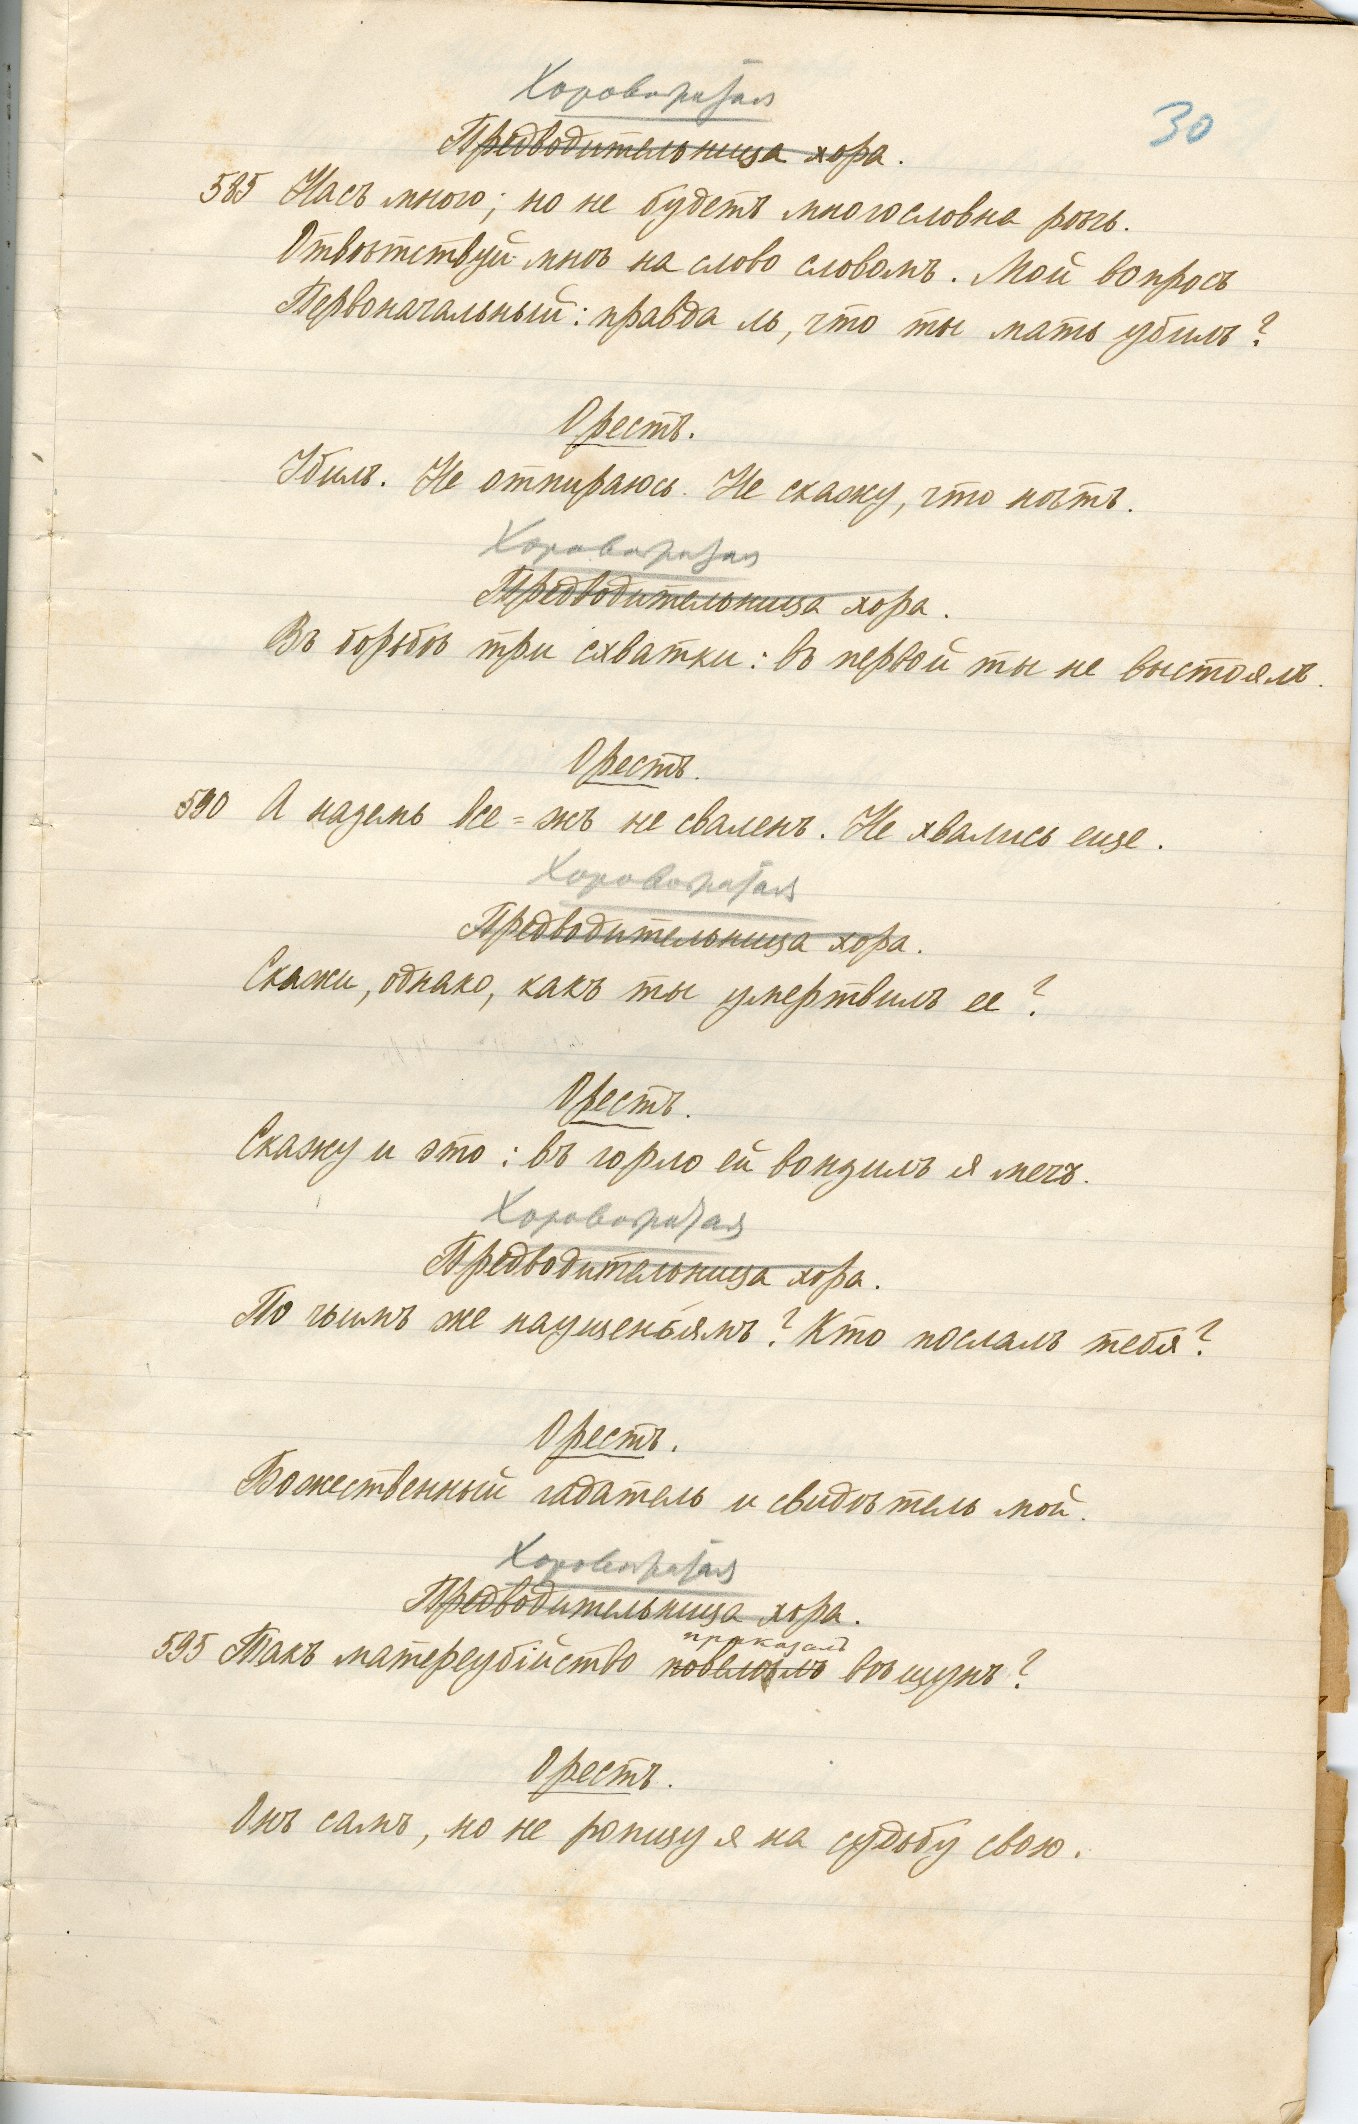 Хоровожатая
30
Предводительница хора.
585 Насъ много; но не будетъ многословна рѣчь.
Отвѣтствуй мнѣ на слово словомъ. Мой вопросъ
Первоначальный: правда ль, что ты мать убилъ?
Орестъ.
Убилъ. Не отпираюсь. Не скажу, что нѣтъ.
Хоровожатая
Предводительница хора.
Въ борьбѣ три схватки: въ первой ты не выстоялъ.
Орестъ.
590 А наземь все=жъ не сваленъ. Не хвались еще.
Хоровожатая
Предводительница хора.
Скажи, однако, какъ ты умертвилъ ее?
Орестъ.
Скажу и это: въ горло ей вонзилъ я мечъ.
Хоровожатая
Предводительница хора.
По чьимъ же наущеньямъ? Кто послалъ тебя?
Орестъ.
Божественный гадатель и свидѣтель мой.
Хоровожатая
Предводительница хора.
приказалъ
595 Такъ матереубійство повелѣлъ вѣщунъ?
Орестъ.
Онъ самъ, но не ропщу я на судьбу свою.